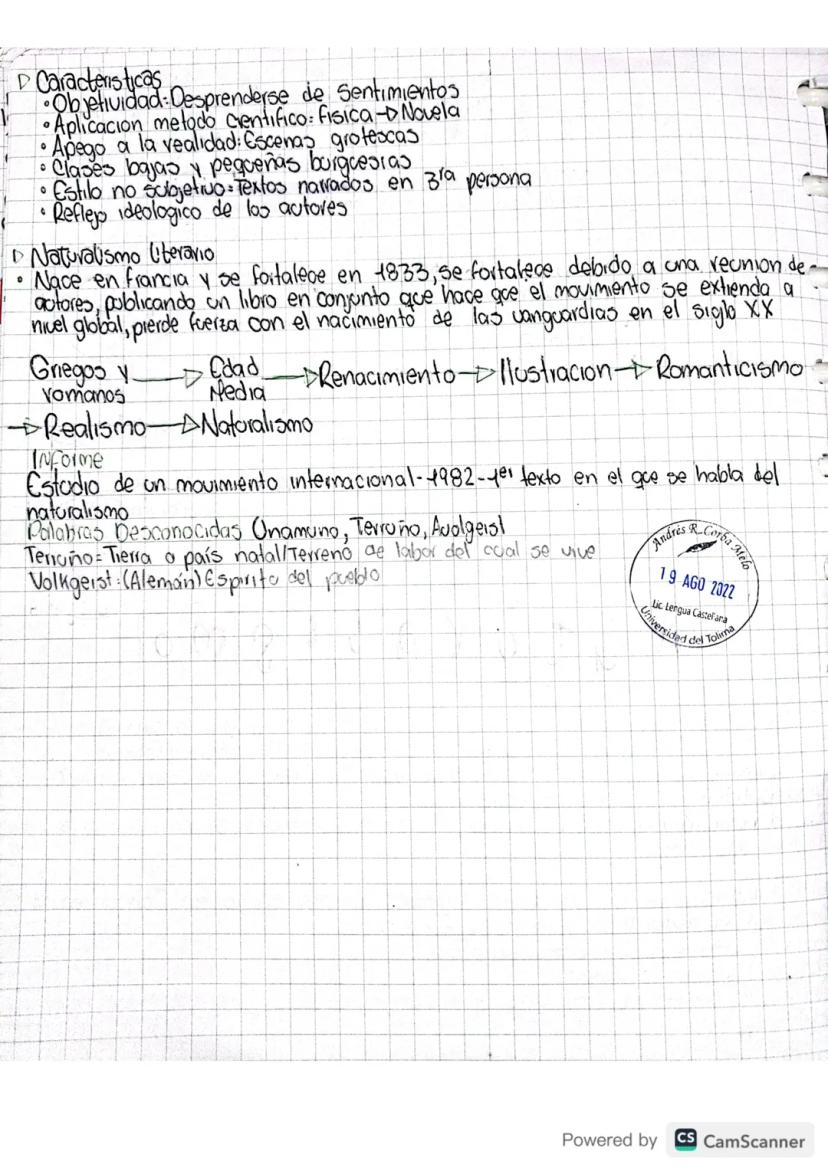 ▷ Caracteristicas
• Objetividad: Desprenderse de sentimientos
• Aplicacion metodo cientifico: fisica → Novela
• Apego a la realidad: Escenas grotescas
• Clases bajas y pequeñas burguesias
• Estilo no subjetivo: Textos narrados en 3ra persona
• Reflejo ideologico de los autores
▷ Naturalismo literario
• Nace en francia y se fortalece en 1833, se fortalece debido a una reunion de
actores, publicando un libro en conjunto que hace que el movimiento se extienda a
nivel global, pierde fuerza con el nacimiento de las vanguardias en el siglo XX
Griegos y romanos → Edad Media → Renacimiento → Ilustracion → Romanticismo
→ Realismo → Naturalismo
Informe
Estudio de un movimiento internacional - 1982 - 1er texto en el que se habla del
naturalismo
Palabras Desconocidas Unamuno, Terruño, Avolgeist
Terruño = Tierra o país natal/Terreno de labor del cual se vive
Volkgeist: (Alemán) Espiritu del pueblo
Andrés R. Corba Melo
19 AGO 2022
Lic. Lengua Castellana
Universidad del Tolima
Powered by CS CamScanner